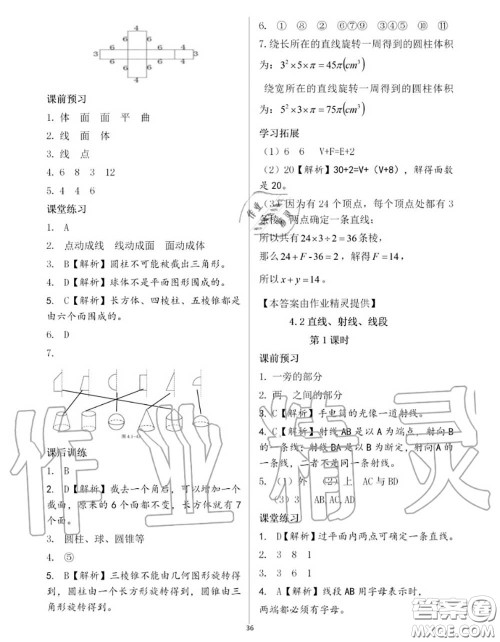 6 6
3 6 6 3 6 3
6 6
课前预习
1. 体 面 面 平 曲
2. 线 面 体
3. 线 点
4. 6 8 3 12
5. 4 4 6
课堂练习
1. A
2. 点动成线 线动成面 面动成体
3. B【解析】圆柱不可能被截出三角形。
4. D【解析】球体不是平面图形围成的。
5. C【解析】长方体、四棱柱、五棱锥都是
由六个面围成的。
6. D
7.
课后训练
1. B
2. D【解析】截去一个角后，可以增加一个
截面，原来的6个面都不变，长方体就有7
个面。
3. 圆柱、球、圆锥等
4. ⑤
5. D【解析】三棱锥不能由几何图形旋转得
到。长方体不能由旋转得到。圆锥可以由三
角形旋转得到。
6. ① ⑧ ② ⑦⑨⑩ ④ ③⑤⑥ ⑪
7. 绕长所在的直线旋转一周得到的圆柱体积
为：3²×5×π=45π(cm³)
绕宽所在的直线旋转一周得到的圆柱体积
为：5²×3×π=75π(cm³)
学习拓展
（1）6 6 V+F=E+2
（2）20【解析】30+2=V+（V+8），解得面数
是20。
（3）因为有24个顶点，每个顶点处都有3
条棱，两点确定一条直线；
所以共有24×3÷2=36条棱，
那么24+F-36=2，解得F=14，
所以x+y=14。
【本答案由作业精灵提供】
4.2直线、射线、线段
第1课时
课前预习
1. 一旁的部分
2. 两 之间的部分
3. C【解析】手电筒的光像一道射线。
4. C【解析】射线AB是以A为端点，射向B
的一条线；射线BA是以B为断定，射向A的
一条线，二者不是同一条射线。
5.（1）外 （2）上 AC与BD
（3）3 AB,AC,AD
课堂练习
1. D【解析】过平面内两点可确定一条直线。
2. 3 8 1
3. 3 6 1
4. A【解析】线段AB用字母表示时，
两端都必须有字母。
36
作业精灵
答案圈
MXQE.COM